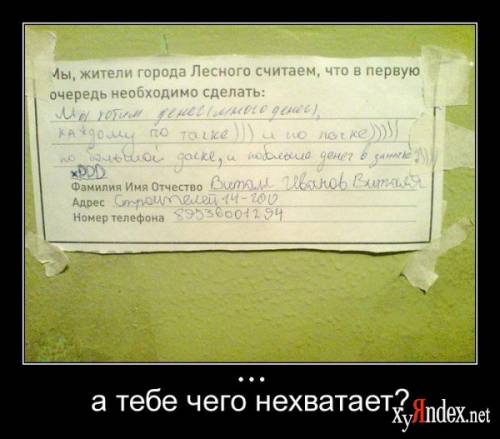 Мы, жители города Лесного считаем, что в первую
очередь необходимо сделать:
Мы хотим денег(много денег),
каждому по тачке))) и по пачке)))))
по большой доске, и побольше денег в
xDDD
Фамилия Имя Отчество Виталя Иванов Виталя
Адрес Строителей 14-200
Номер телефона 89536001294
...
а тебе чего нехватает?
xyЯndex.net